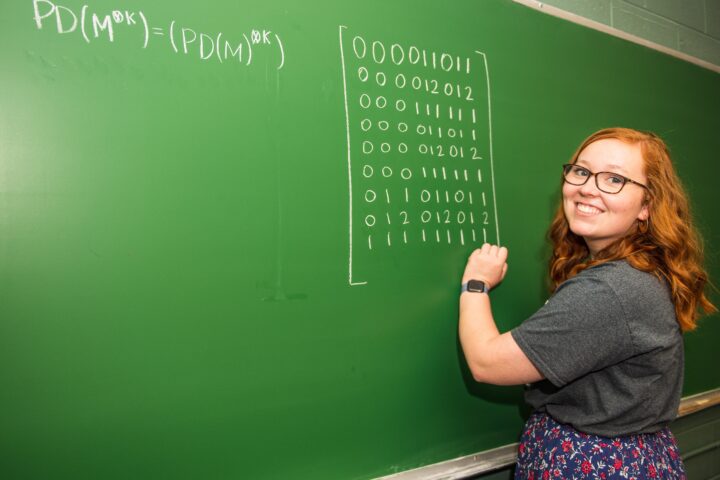 PD(M⊗K) = (PD(M)⊗K)
0 0 0 0 1 1 0 1 1
0 0 0 0 1 2 0 1 2
0 0 0 1 1 1 1 1 1
0 0 0 0 1 1 0 1 1
0 0 0 0 1 2 0 1 2
0 0 0 1 1 1 1 1 1
0 1 1 0 1 1 0 1 1
0 1 2 0 1 2 0 1 2
1 1 1 1 1 1 1 1 1